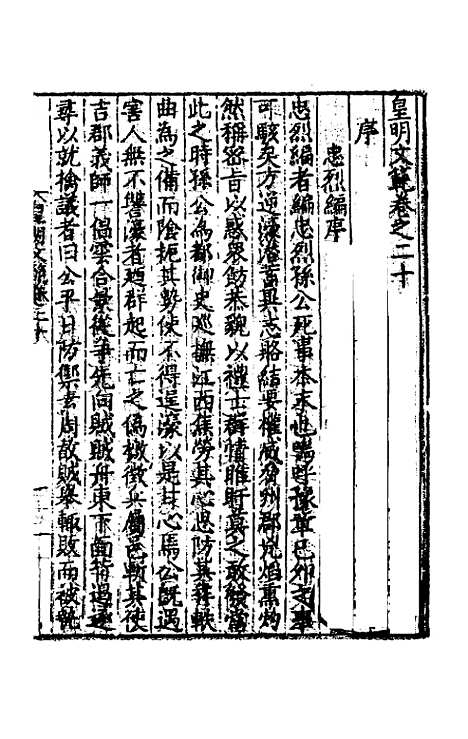 皇明文範卷之二十
序
忠烈編序
忠烈編者編忠烈孫公死事本末也嗚呼豫章己卯之事
可駭矣方逆濠舊異志賂結要權威脅州郡兇焰熏灼
然稱密旨以惑衆飭恭貌以禮士群情睢盱莫之敢發當
此之時孫公為都御史巡撫江西焦勞其心思防其釁軼
曲為之備而陰扼其勢使不得逞濠以是甘心焉公既遇
害人無不讐濠者廼群起而亡之偽檄徵兵屬邑斬其使
吉郡義師一倡雲合景從爭先向賊賊舟東下面背遏逐
尋以就擒議者曰公平日防禦者周故賊舉輒敗而被執
皇明文範卷二十